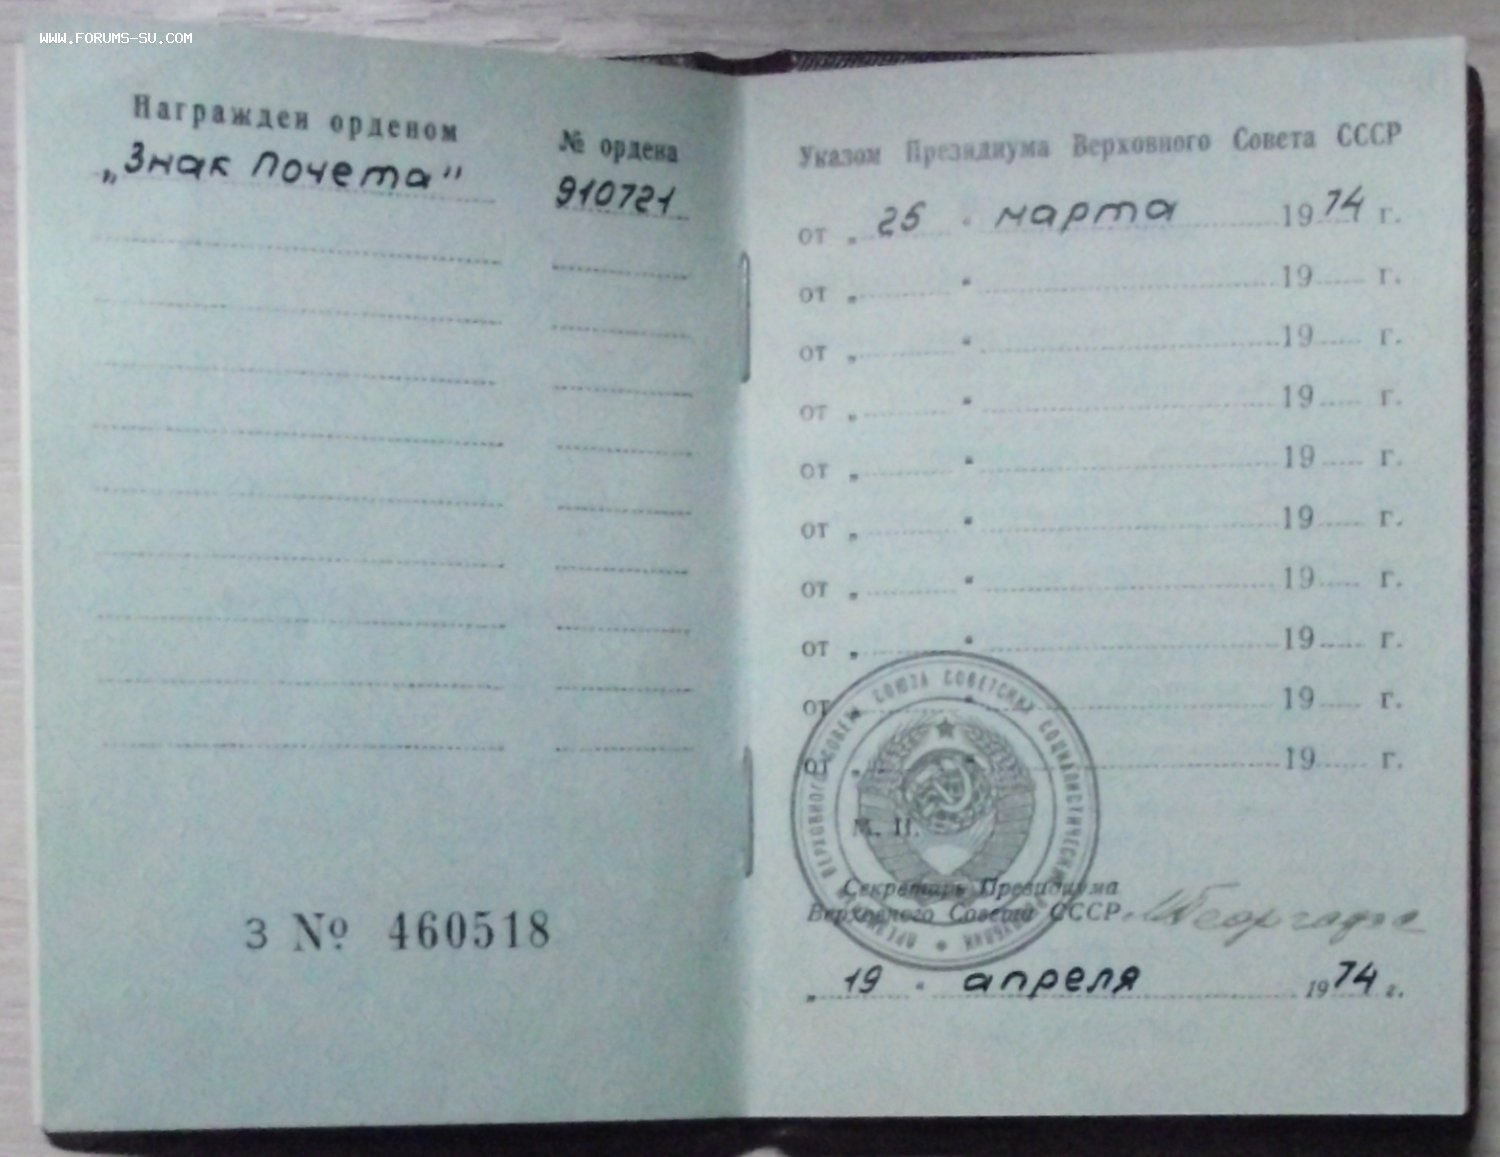 WWW.FORUMS-SU.COM
Награжден орденом
№ ордена
„Знак Почета"
910721
Указом Президиума Верховного Совета СССР
от „ 25 " марта 1974 г.
от „ " 19 г.
от „ " 19 г.
от „ " 19 г.
от „ " 19 г.
от „ " 19 г.
от „ " 19 г.
от „ " 19 г.
от „ " 19 г.
от „ " 19 г.
ПРЕЗИДИУМ ВЕРХОВНОГО СОВЕТА СОЮЗА СОВЕТСКИХ СОЦИАЛИСТИЧЕСКИХ РЕСПУБЛИК
М. П.
Секретарь Президиума
Верховного Совета СССР МГеоргадзе
З № 460518
„ 19 " апреля 1974 г.